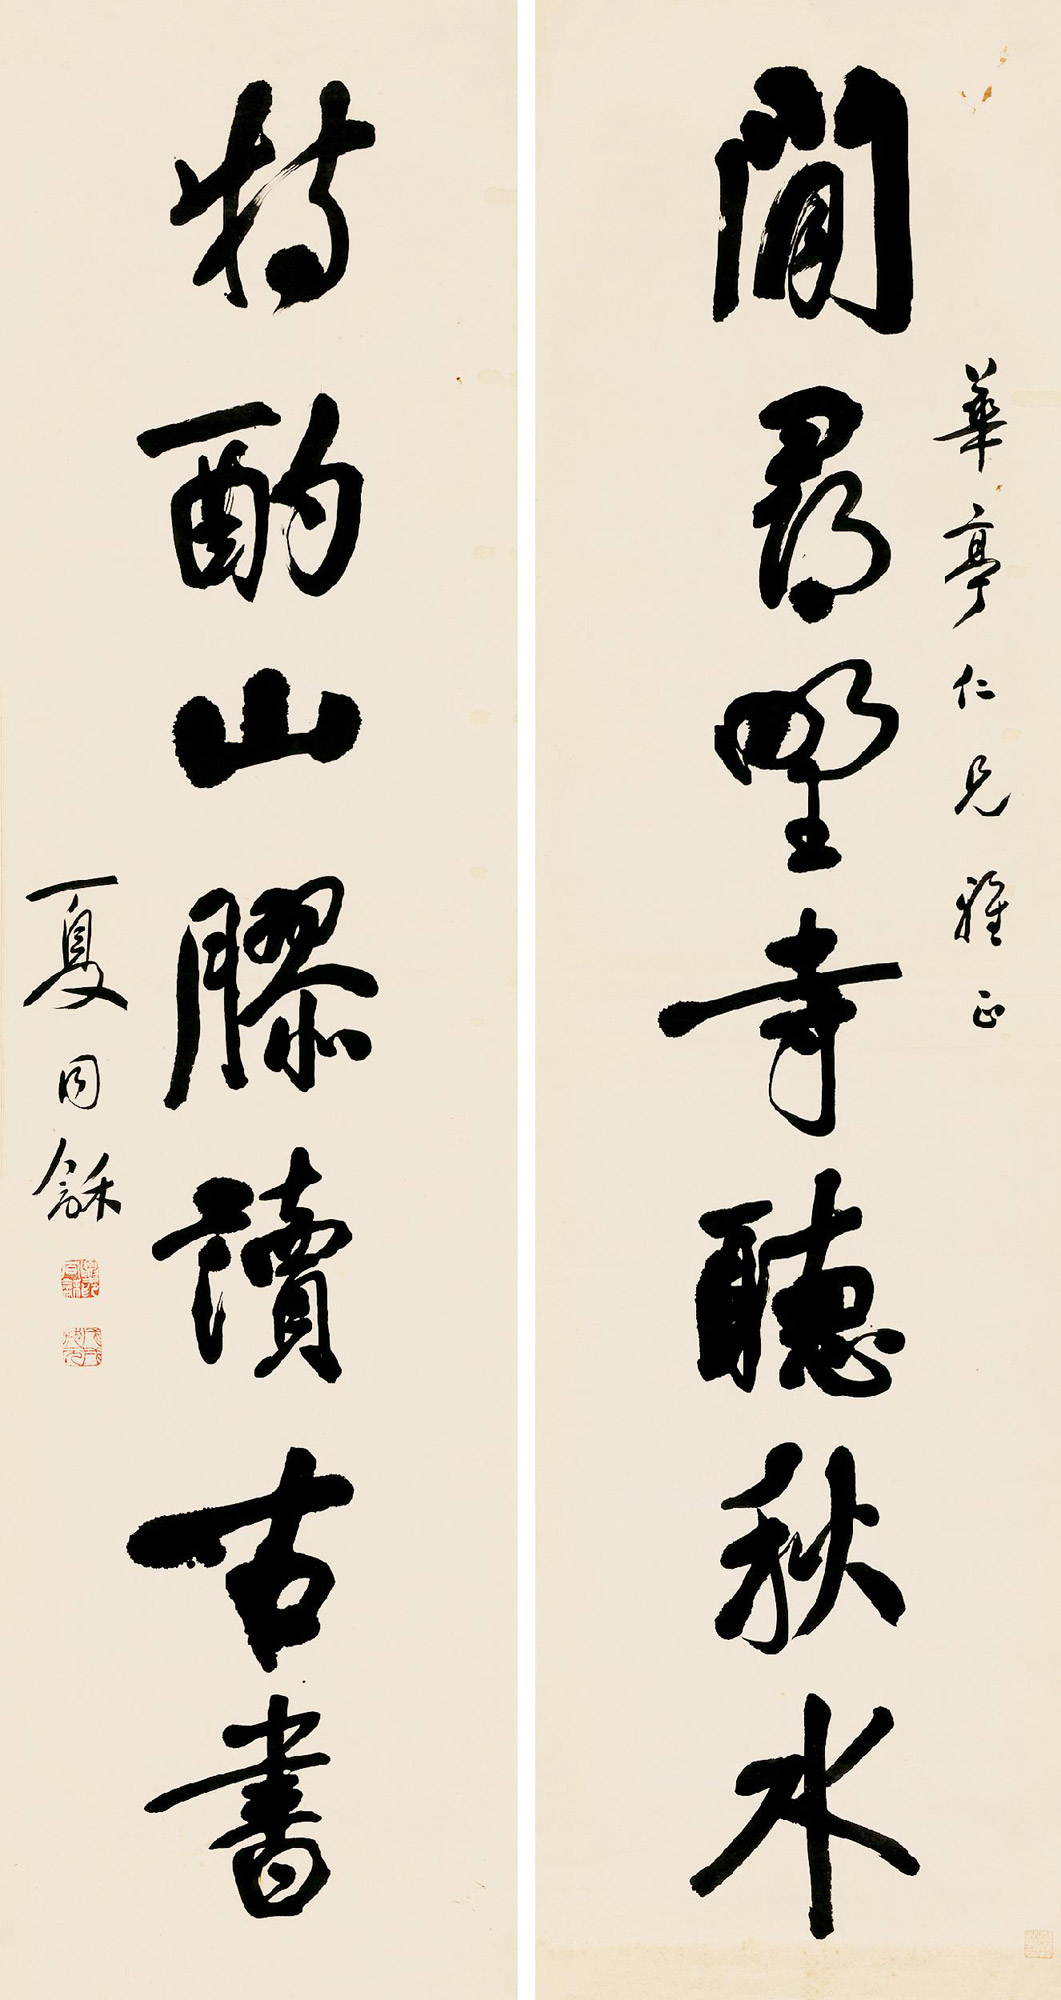 華亭仁兄雅正
閒尋野寺聽秋水
特酌山醪讀古書
夏同龢